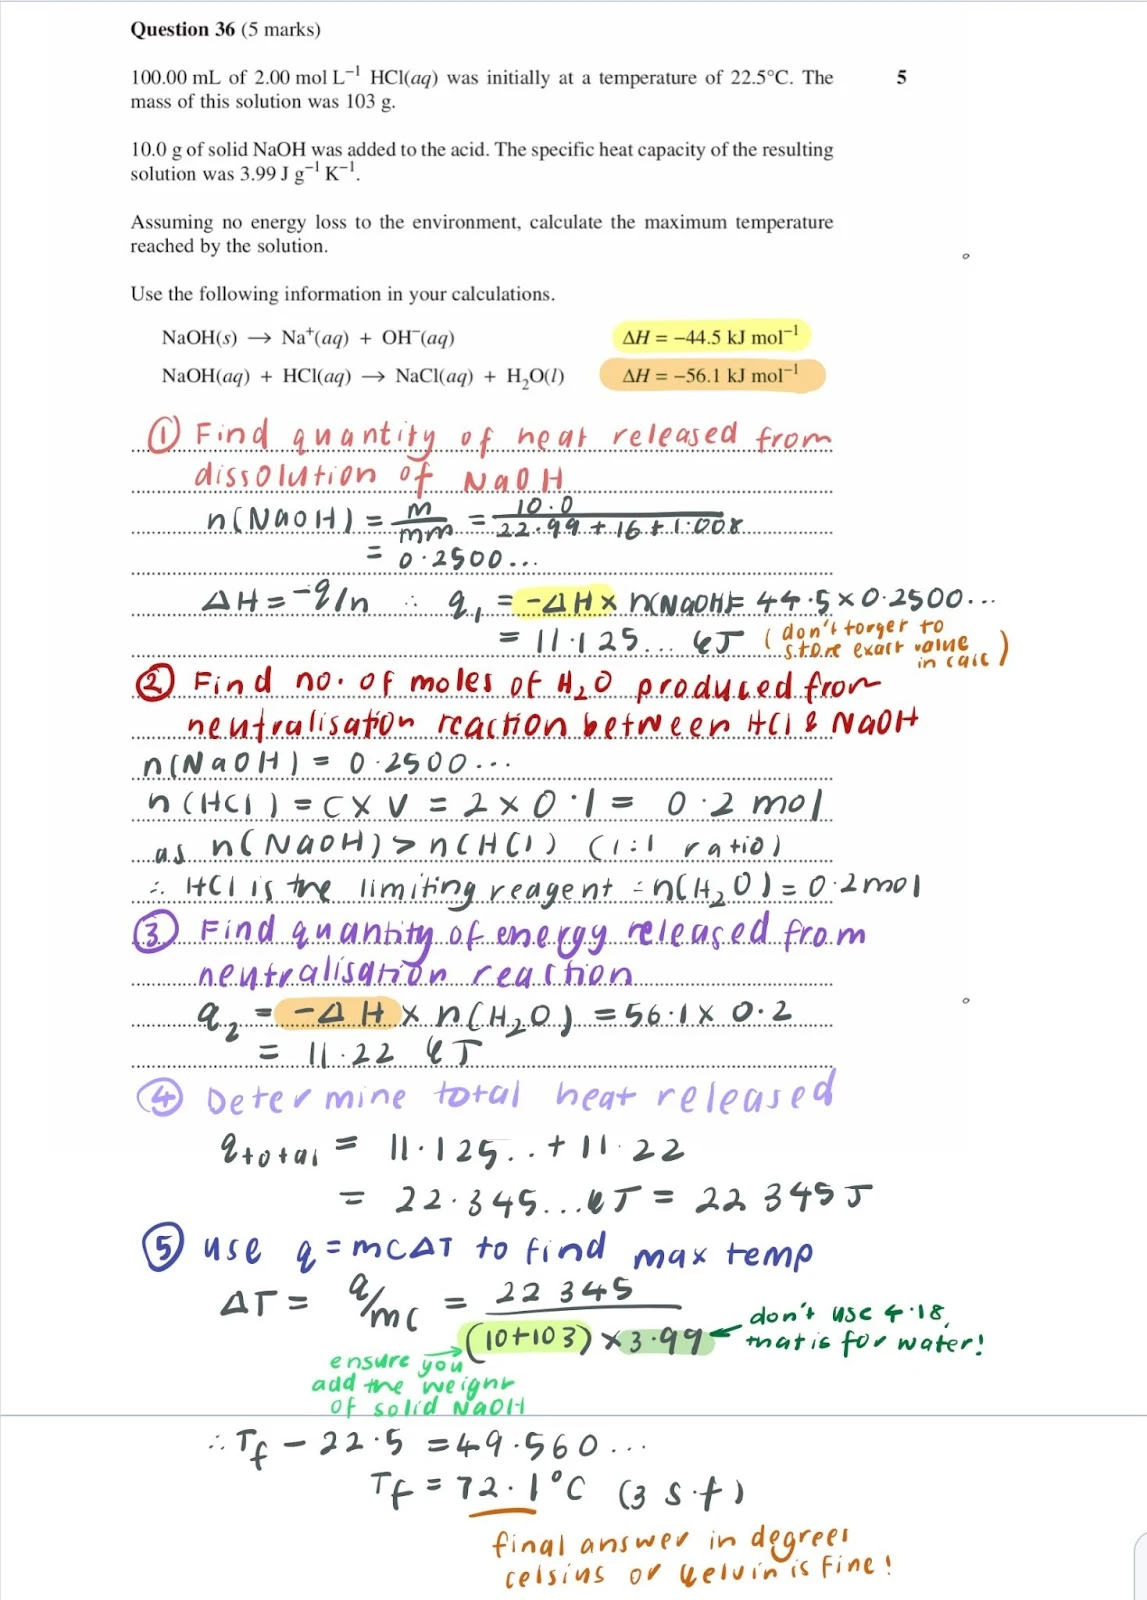 Question 36 (5 marks)
100.00 mL of 2.00 mol L⁻¹ HCl(aq) was initially at a temperature of 22.5°C. The 5
mass of this solution was 103 g.
10.0 g of solid NaOH was added to the acid. The specific heat capacity of the resulting
solution was 3.99 J g⁻¹ K⁻¹.
Assuming no energy loss to the environment, calculate the maximum temperature
reached by the solution.
Use the following information in your calculations.
NaOH(s) → Na⁺(aq) + OH⁻(aq) ΔH = −44.5 kJ mol⁻¹
NaOH(aq) + HCl(aq) → NaCl(aq) + H₂O(l) ΔH = −56.1 kJ mol⁻¹
① Find quantity of heat released from
dissolution of NaOH
n(NaOH) = m/mm = 10.0/22.99 + 16 + 1.008
= 0.2500...
ΔH = -q/n ∴ q₁ = -ΔH × n(NaOH) = 44.5 × 0.2500...
= 11.125... kJ (don't forget to
store exact value
in calc)
② Find no. of moles of H₂O produced from
neutralisation reaction between HCl & NaOH
n(NaOH) = 0.2500...
n(HCl) = c × v = 2 × 0.1 = 0.2 mol
as n(NaOH) > n(HCl) (1:1 ratio)
∴ HCl is the limiting reagent ∴ n(H₂O) = 0.2 mol
③ Find quantity of energy released from
neutralisation reaction
q₂ = -ΔH × n(H₂O) = 56.1 × 0.2
= 11.22 kJ
④ Determine total heat released
q total = 11.125.. + 11.22
= 22.345... kJ = 22 345 J
⑤ use q = mcΔT to find max temp
ΔT = q/mc = 22 345/(10+103) × 3.99
don't use 4.18,
that is for water!
ensure you
add the weight
of solid NaOH
∴ Tf − 22.5 = 49.560...
Tf = 72.1°C (3 s.f)
final answer in degrees
celsius or kelvin is fine!